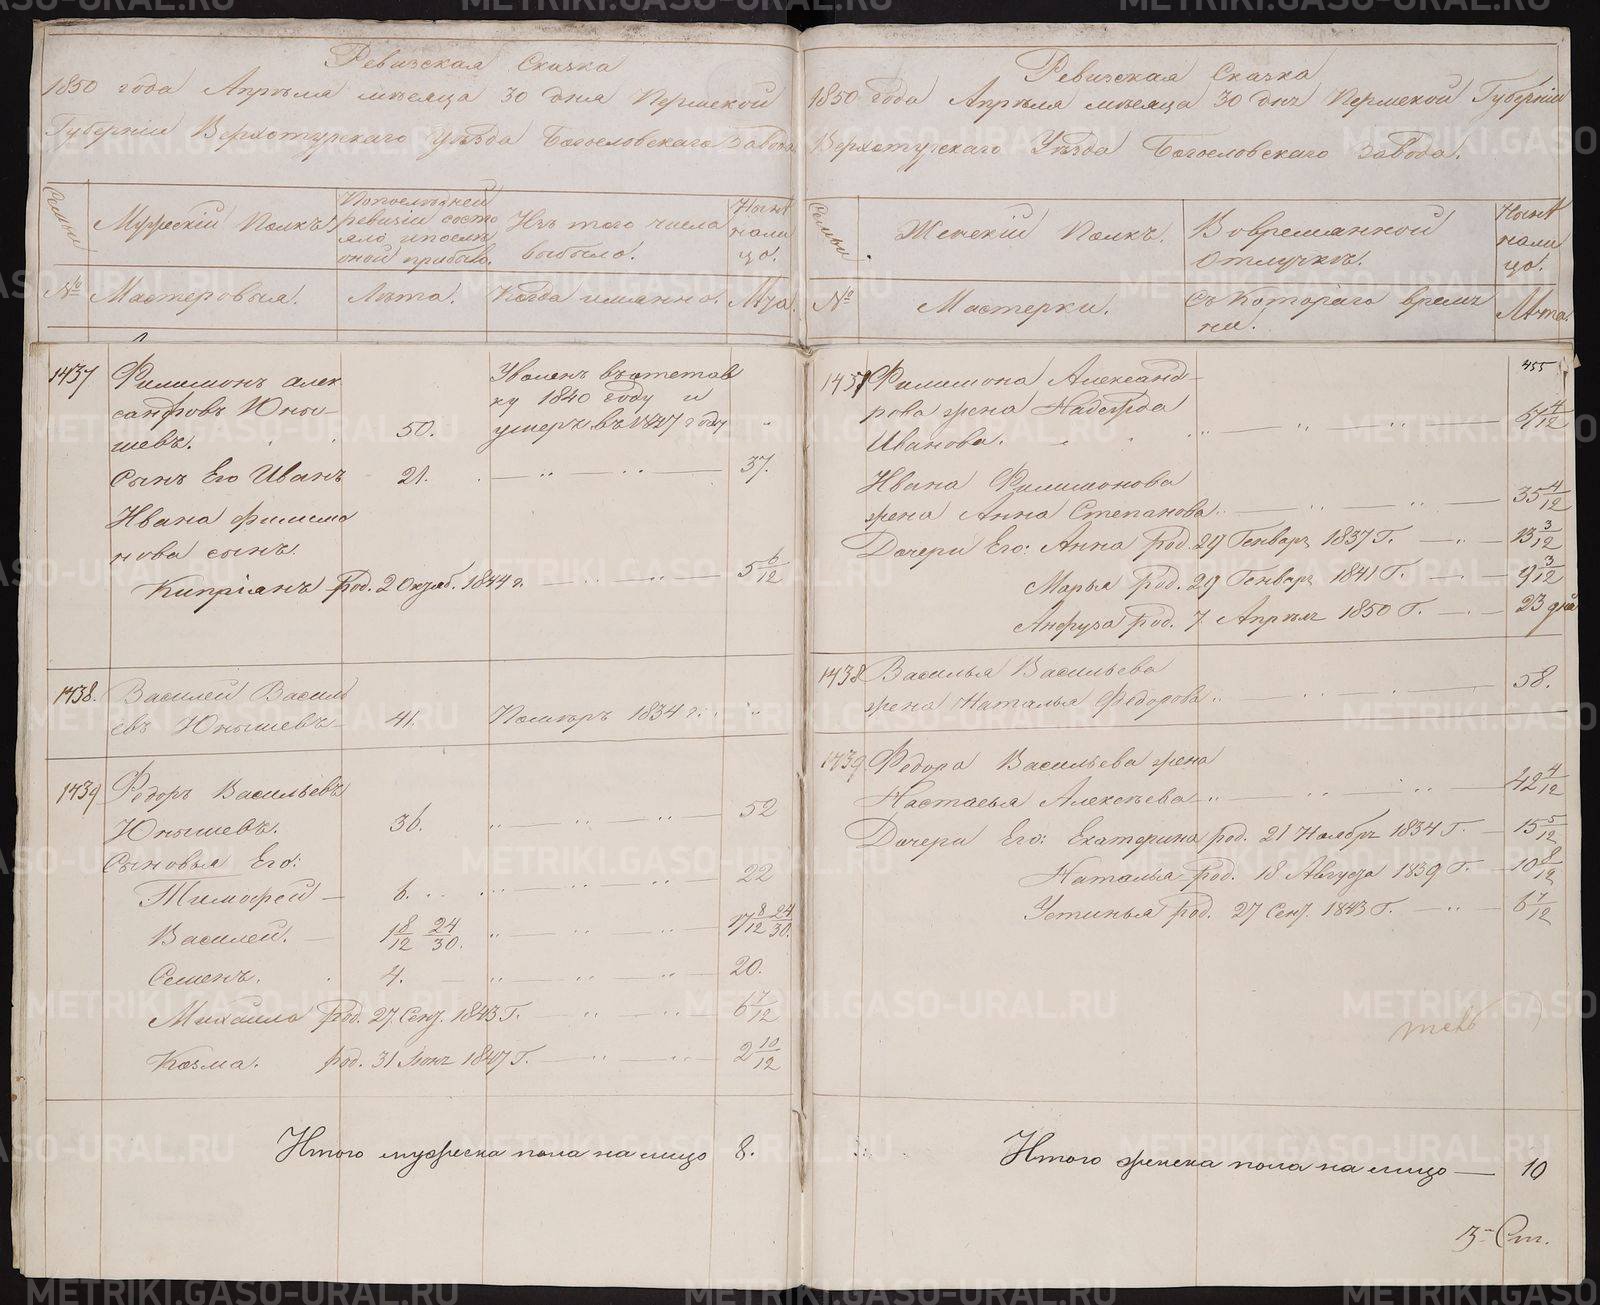 Ревизская Сказка
1850 года Апрѣля мѣсяца 30 дня Пермской
Губерніи Верхотурскаго Уѣзда Богословскаго Завода
Семьи
Мужескій Полкъ.
По последней
ревизіи состо
яло и после
оной прибыло.
Изъ того числа
выбыло.
Нынѣ
нали
цо.
№
Мастеровыя.
Лѣта.
Когда имянно.
Лѣта.
1437
Филимонъ Алек
сандровъ Юны-
шевъ.
50.
Уволенъ въ отстав
ку 1840 году и
умеръ въ 1847 году
Сынъ Его Иванъ
21.
37.
Ивана Филимо
нова сынъ.
Кипріанъ род. 2 Октяб. 1844 г.
5 6/12
1438.
Василей Василь
евъ Юнышевъ
41.
Помѣръ 1834 г.
1439
Федоръ Васильевъ
Юнышевъ.
36.
52
Сыновья Его:
Тимофей — 6.
22
Василей. — 1 8/12 24/30.
17 8/12 24/30.
Семенъ. 4.
20.
Михайло род. 27. Сент. 1843 Г.
6 7/12
Козма. род. 31 Іюнь 1847 Г.
2 10/12
Итого мужеска пола на лицо 8.
Ревизская Сказка
1850 года Апрѣля мѣсяца 30 днѣ Пермской Губерніи
Верхотурскаго Уѣзда Богословскаго Завода.
Семьи
Женскій Полкъ.
Во времянной
отлучкѣ.
Нынѣ
нали
цо.
№
Мастерки.
Съ Котораго време
ни.
Лѣта.
455
1437
Филимона Александ-
рова жена Надежда
Иванова.
67 4/12
Ивана Филимонова
жена Анна Степанова.
35 4/12
Дочери Его: Анна род. 29 Генваря 1837 Г.
13 3/12
Марья род. 29 Генваря 1841 Г.
9 3/12
Анфуза род. 7 Апрѣля 1850 Г.
23 дня
1438
Василья Васильева
жена Наталья Федорова
58.
1439
Федора Васильева жена
Настасья Алексѣева
42 4/12
Дочери Его: Екатерина род. 21 Ноября 1834 Г.
15 5/12
Наталья род. 18 Августа 1839 Г.
10 8/12
Устинья род. 27 Сент. 1843 Г.
6 7/12
Итого женска пола на лицо — 10
METRIKI.GASO-URAL.RU